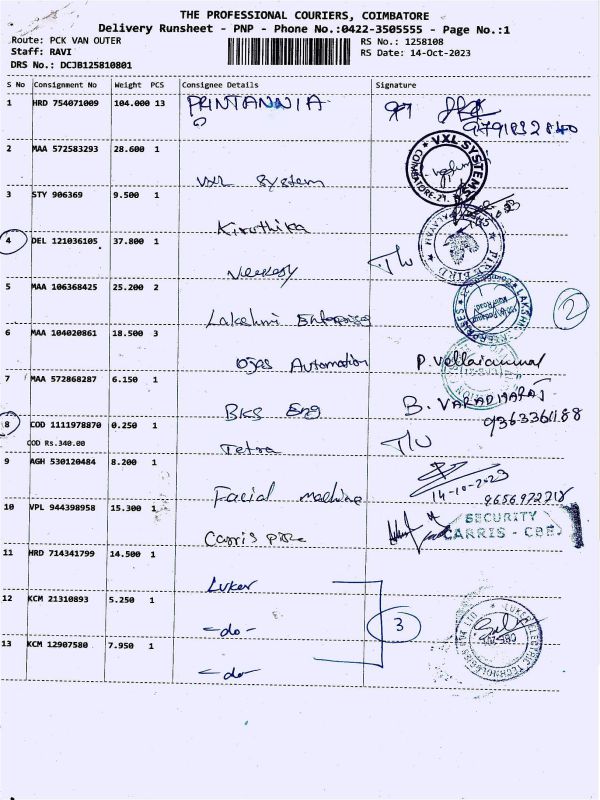 THE PROFESSIONAL COURIERS, COIMBATORE
Delivery Runsheet - PNP - Phone No.:0422-3505555 - Page No.:1
Route: PCK VAN OUTER
RS No.: 1258108
Staff: RAVI
RS Date: 14-Oct-2023
DRS No.: DCJB125810801
S No Consignment No Weight PCS Consignee Details Signature
1 HRD 754071009 104.000 13 PRINTANNIA
2 MAA 572583293 28.600 1 VXL System
VXL SYSTEMS COIMBATORE-29
3 STY 906369 9.500 1 Kiruthika
4 DEL 121036105 37.800 1 T/U
5 MAA 106368425 25.200 2 Lakshmi Enterprise
2
6 MAA 104020861 18.500 3 Ojas Automation P. Vellaiammal
7 MAA 572868287 6.150 1 BKS Eng B. VARADHARAJ
9363361188
8 COD 1111978870 0.250 1 Tetra T/U
COD Rs.340.00
9 AGH 530120484 8.200 1 Facial Machine 14-10-2023
10 VPL 944398958 15.300 1 Carris pipe
SECURITY
CARRIS - CBE
11 HRD 714341799 14.500 1 Luker
12 KCM 21310893 5.250 1 -do-
3
13 KCM 12907580 7.950 1 -do-